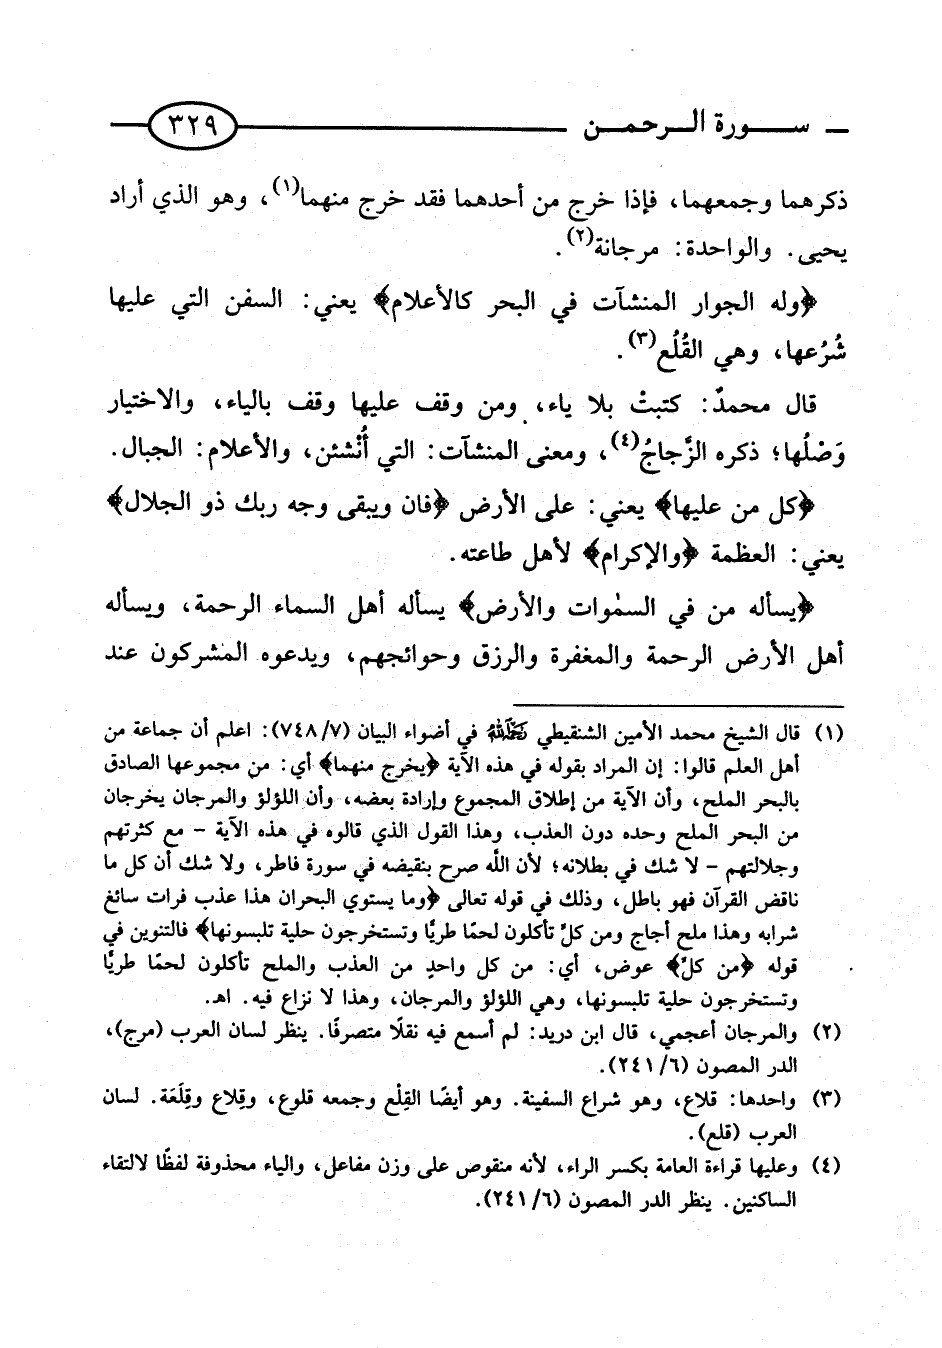 ـ ســـورة الـرحمـن
٣٢٩
ذكرهما وجمعهما، فإذا خرج من أحدهما فقد خرج منهما(١)، وهو الذي أراد
يحيى. والواحدة: مرجانة(٢).
﴿وله الجوار المنشآت في البحر كالأعلام﴾ يعني: السفن التي عليها
شُرُعها، وهي القُلُع(٣).
قال محمدٌ: كتبتْ بلا ياء، ومن وقف عليها وقف بالياء، والاختيار
وَصْلُها؛ ذكره الزَّجاجُ(٤)، ومعنى المنشآت: التي أُنْشئن، والأعلام: الجبال.
﴿كل من عليها﴾ يعني: على الأرض ﴿فان ويبقى وجه ربك ذو الجلال﴾
يعني: العظمة ﴿والإكرام﴾ لأهل طاعته.
﴿يسأله من في السمٰوات والأرض﴾ يسأله أهل السماء الرحمة، ويسأله
أهل الأرض الرحمة والمغفرة والرزق وحوائجهم، ويدعوه المشركون عند
(١) قال الشيخ محمد الأمين الشنقيطي رَحِمَهُ اللهُ في أضواء البيان (٧/ ٧٤٨): اعلم أن جماعة من
أهل العلم قالوا: إن المراد بقوله في هذه الآية ﴿يخرج منهما﴾ أي: من مجموعها الصادق
بالبحر الملح، وأن الآية من إطلاق المجموع وإرادة بعضه، وأن اللؤلؤ والمرجان يخرجان
من البحر الملح وحده دون العذب، وهذا القول الذي قالوه في هذه الآية – مع كثرتهم
وجلالتهم – لا شك في بطلانه؛ لأن الله صرح بنقيضه في سورة فاطر، ولا شك أن كل ما
ناقض القرآن فهو باطل، وذلك في قوله تعالى ﴿وما يستوي البحران هذا عذب فرات سائغ
شرابه وهذا ملح أجاج ومن كلٍّ تأكلون لحمًا طريًّا وتستخرجون حلية تلبسونها﴾ فالتنوين في
قوله ﴿من كلٍّ﴾ عوض، أي: من كل واحدٍ من العذب والملح تأكلون لحمًا طريًّا
وتستخرجون حلية تلبسونها، وهي اللؤلؤ والمرجان، وهذا لا نزاع فيه. اهـ.
(٢) والمرجان أعجمي، قال ابن دريد: لم أسمع فيه نقلًا متصرفًا. ينظر لسان العرب (مرج)،
الدر المصون (٦/ ٢٤١).
(٣) واحدها: قلاع، وهو شراع السفينة. وهو أيضًا القِلْع وجمعه قلوع، وقِلاع وقِلَعَة. لسان
العرب (قلع).
(٤) وعليها قراءة العامة بكسر الراء، لأنه منقوص على وزن مفاعل، والياء محذوفة لفظًا لالتقاء
الساكنين. ينظر الدر المصون (٦/ ٢٤١).